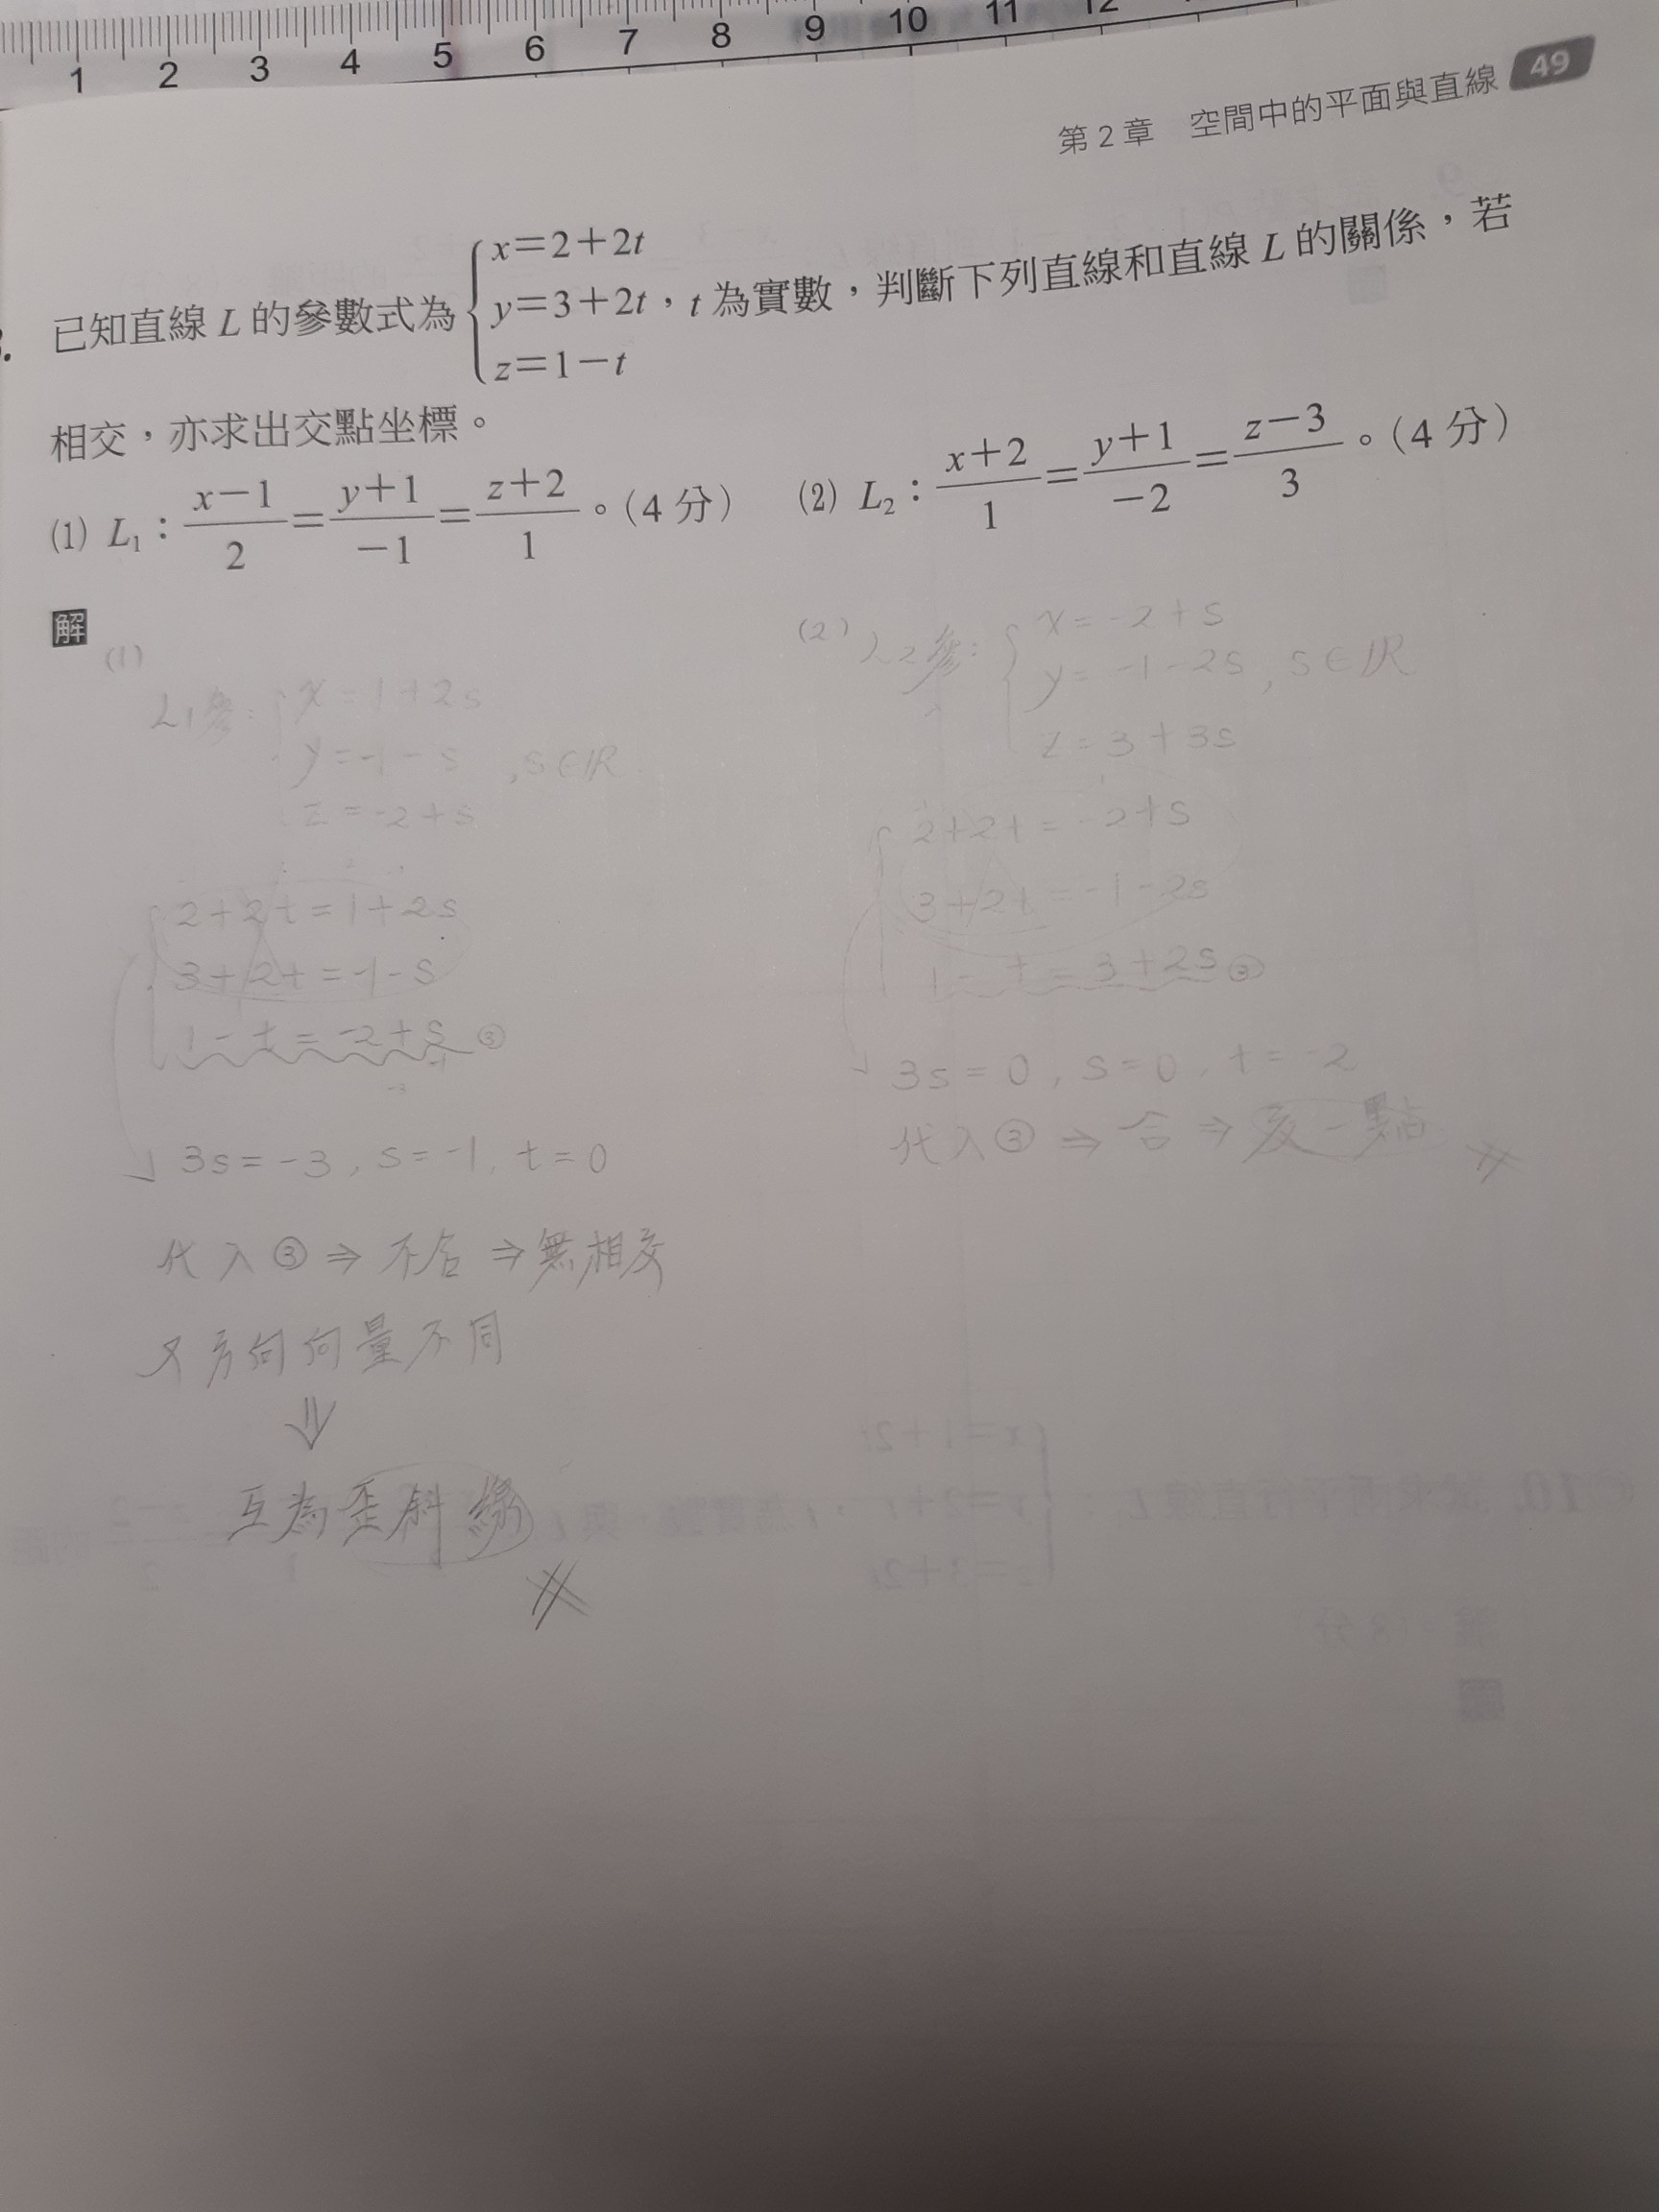 1 2 3 4 5 6 7 8 9 10 11 12
第2章 空間中的平面與直線 49
已知直線 L 的參數式為 { x=2+2t
y=3+2t,t 為實數,判斷下列直線和直線 L 的關係,若
z=1-t
相交,亦求出交點坐標。
(1) L₁:(x-1)/2=(y+1)/-1=(z+2)/1。(4分) (2) L₂:(x+2)/1=(y+1)/-2=(z-3)/3。(4分)
解
(1)
L₁參:{ x=1+2s
y=-1-s ,s∈R
z=-2+s
2+2t=1+2s
3+2t=-1-s
1-t=-2+s ③
3s=-3, s=-1, t=0
代入③⇒不合⇒無相交
又方向向量不同
⇓
互為歪斜線
(2) L₂參:{ x=-2+s
y=-1-2s, s∈R
z=3+3s
2+2t=-2+s
3+2t=-1-2s
1-t=3+2s ③
3s=0, s=0, t=-2
代入③⇒合⇒交一點